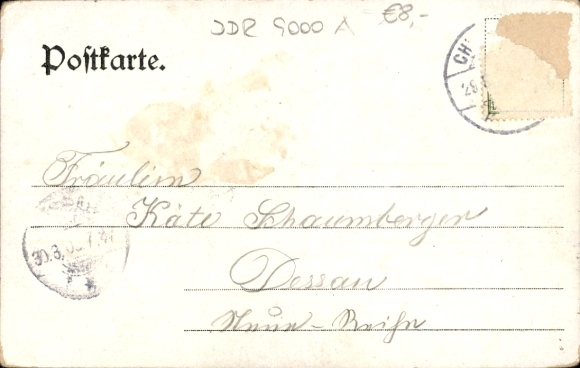 DDR 9000 A €8,-
Postkarte.
CH
Fräulein
Käte Schaumberger
Dessau
Neue-Reihe
30.3.